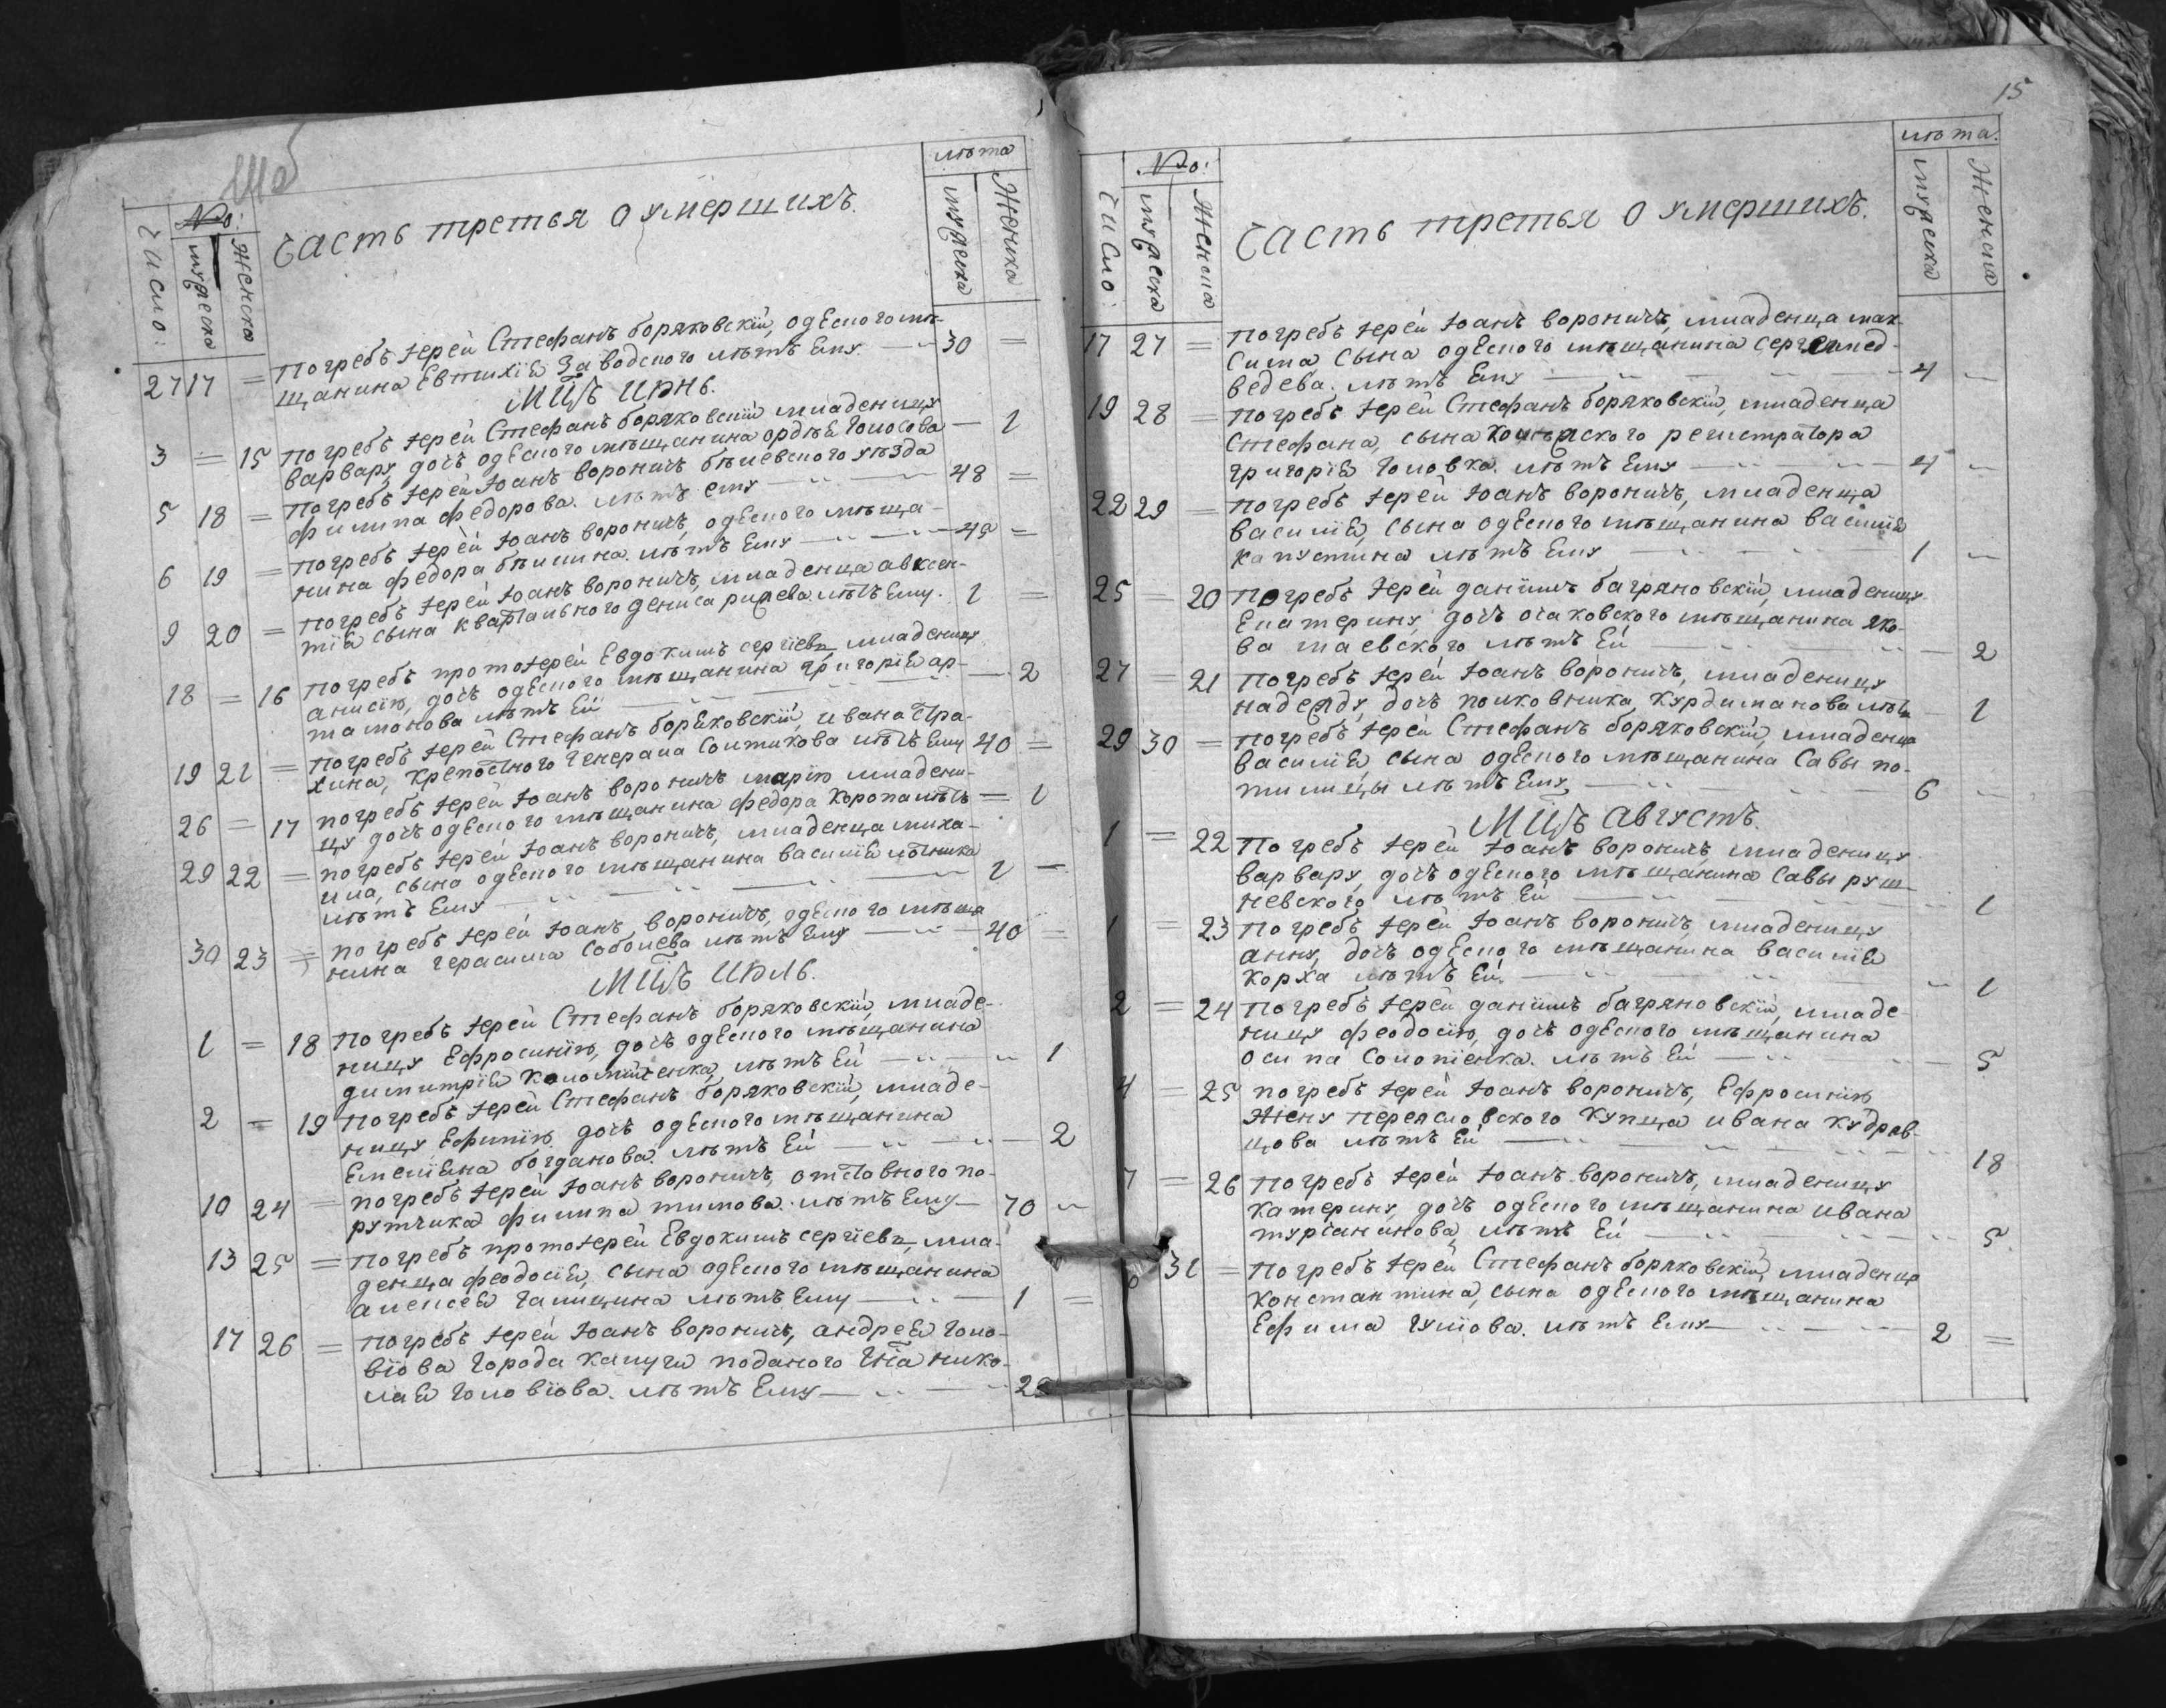 число:
№:
мужеска
женска
Часть третья о умершихъ.
лѣта
мужеска
женска
27 17 = погребъ іерей Стефанъ боряковскій, одескаго мѣ-
щанина Евтихія Заводского лѣтъ Ему — 30 =
Мцъ июнь.
3 = 15 погребъ іерей Стефанъ боряковскій младеницу
варвару, дочь одеского мѣщанина Голосова — 1
5 18 = погребъ іерей Іоанъ вороничъ бѣлевского уѣзда
филипа федорова. лѣтъ ему — 48 =
6 19 = погребъ іерей Іоанъ вороничъ, одеского мѣща-
нина федора бѣлина. лѣтъ Ему — =
9 20 = погребъ іерей Іоанъ вороничъ, младенца авксен-
тія сына квартального дениса лѣтъ Ему. 1 =
18 = 16 погребъ протоіерей Евдокимъ сергіевъ, младеницу
анисію, дочь одеского мѣщанина григорія ар-
тамонова лѣтъ Ей — 2
19 21 = погребъ іерей Стефанъ боряковскій, ивана
крепостного Генерала Солтикова лѣтъ Ему 40 =
26 = 17 погребъ іерей Іоанъ вороничъ марію младени-
цу дочь одеского мѣщанина федора Коропа лѣтъ = 1
29 22 = погребъ іерей Іоанъ вороничъ, младенца миха-
ила, сына одеского мѣщанина василія
лѣтъ Ему — 1 —
30 23 = погребъ іерей Іоанъ вороничъ, одеского мѣща
нина герасима Соболева лѣтъ Ему — 40 =
Мцъ июль.
1 = 18 погребъ іерей Стефанъ боряковскій, младе-
ницу Ефросинію, дочь одеского мѣщанина
димитрія лѣтъ Ей — 1
2 = 19 погребъ іерей Стефанъ боряковскій, младе-
ницу Ефимію дочь одеского мѣщанина
Емеліяна богданова. лѣтъ Ей — 2
10 24 = погребъ іерей Іоанъ вороничъ, отставного по-
рутчика филипа титова. лѣтъ Ему — 70 —
13 25 = погребъ протоіерей Евдокимъ сергіевъ, мла-
денца феодосія, сына одеского мѣщанина
алексея галицина лѣтъ Ему — 1 =
17 26 = погребъ іерей Іоанъ вороничъ, андрея Голо-
віова города калуги поданого Гна нико-
лая Головіова. лѣтъ Ему —
15
число:
№:
мужеска
женска
Часть третья о умершихъ.
лѣта.
мужеска
женска
17 27 = погребъ іерей Іоанъ вороничъ, младенца мак-
сима, сына одеского мѣщанина мед-
ведева. лѣтъ Ему — 4 —
19 28 = погребъ іерей Стефанъ боряковскій, младенца
Стефана, сына регистратора
григорія Головка. лѣтъ Ему — 4 —
22 29 = погребъ іерей Іоанъ вороничъ, младенца
василія, сына одеского мѣщанина василія
капустина лѣтъ Ему — 1 —
25 = 20 погребъ іерей даніилъ багряновскій, младеницу
Екатерину, дочь очаковского мѣщанина яко-
ва маевского лѣтъ Ей — 2
27 = 21 погребъ іерей Іоанъ вороничъ, младеницу
надежду, дочь полковника, курдиманова лѣтъ — 1
29 30 = погребъ іерей Стефанъ боряковскій, младенца
василія, сына одеского мѣщанина Савы по-
тилицы лѣтъ Ему, — 6 —
Мцъ Августъ.
1 = 22 погребъ іерей Іоанъ вороничъ, младеницу
варвару, дочь одеского мѣщанина Савы руш-
невского лѣтъ Ей — 1
1 = 23 погребъ іерей Іоанъ вороничъ, младеницу
анну, дочь одеского мѣщанина василія
коржа лѣтъ Ей. — 1
2 = 24 погребъ іерей даніилъ багряновскій, младе-
ницу феодосію, дочь одеского мѣщанина
осипа Солопіенка. лѣтъ Ей — 5
4 = 25 погребъ іерей Іоанъ вороничъ, Ефросинію
жену переясловского купца ивана кудряв-
цова лѣтъ Ей — 18
7 = 26 погребъ іерей Іоанъ вороничъ, младеницу
катерину, дочь одеского мѣщанина ивана
турчанинова, лѣтъ Ей — 5
31 = погребъ іерей Стефанъ боряковскій, младенца
константина, сына одеского мѣщанина
Ефима лѣтъ Ему — 2 =